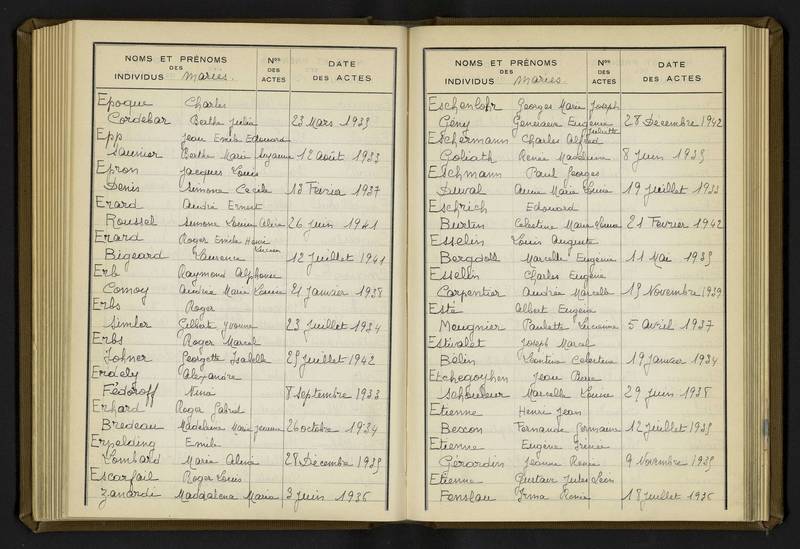 NOMS ET PRÉNOMS DES INDIVIDUS Mariés. Nos DES ACTES DATE DES ACTES
Epoque Charles
Cordebar Berthe Julia 23 Mars 1939
Epp Jean Emile Edouard
Saunier Berthe Marie Suzanne 12 août 1933
Epron Jacques Louis
Denis Simone Cecile 13 Fevrier 1937
Erard André Ernest
Roussel Simone Louise Alina 26 juin 1941
Erard Roger Emile Henri Lucien
Bigeard Laurence 12 Juillet 1941
Erb Raymond Alphonse
Comoy Andrée Marie Louise 21 janvier 1938
Erbs Roger
Simler Gilberte Yvonne 23 Juillet 1934
Erbs Roger Marcel
Johner Georgette Isabelle 25 Juillet 1942
Erdely Alexandre
Fédoroff Nina 8 septembre 1933
Erhard Roger Gabriel
Bredeau Madeleine Marie Jeanne 26 octobre 1934
Erpelding Emile
Lombard Marie Alina 28 Décembre 1935
Escarfail Roger Louis
Zanardi Maddalena Maria 3 juin 1936
NOMS ET PRÉNOMS DES INDIVIDUS Mariés. Nos DES ACTES DATE DES ACTES
Eschenlohr Georges Marie Joseph
Gény Genevieve Eugenie Juliette 28 Decembre 1942
Eschermann Charles Alfred
Goliath Renée Madeleine 8 Juin 1935
Eschmann Paul Georges
Duval Anne Marie Louise 19 Juillet 1933
Eschrich Edouard
Burtin Celestine Marie 21 Fevrier 1942
Esselin Louis Auguste
Bergdoll Marcelle Eugenie 11 Mai 1935
Esselin Charles Eugène
Carpentier Andrée Marcelle 15 Novembre 1939
Esté Albert Eugene
Meugnier Paulette Lucienne 5 Avril 1937
Estivalet Joseph Marcel
Bélin Léontine Celestine 19 janvier 1934
Etchegoyhen Jean Pierre
Marcelle Louise 29 juin 1938
Etienne Henri Jean
Becxon Fernande Germaine 12 Juillet 1935
Etienne Eugène Irénée
Gérardin Jeanne Renée 9 Novembre 1935
Etienne Gustave Jules Léon
Fenslau Irma Renée 18 Juillet 1936